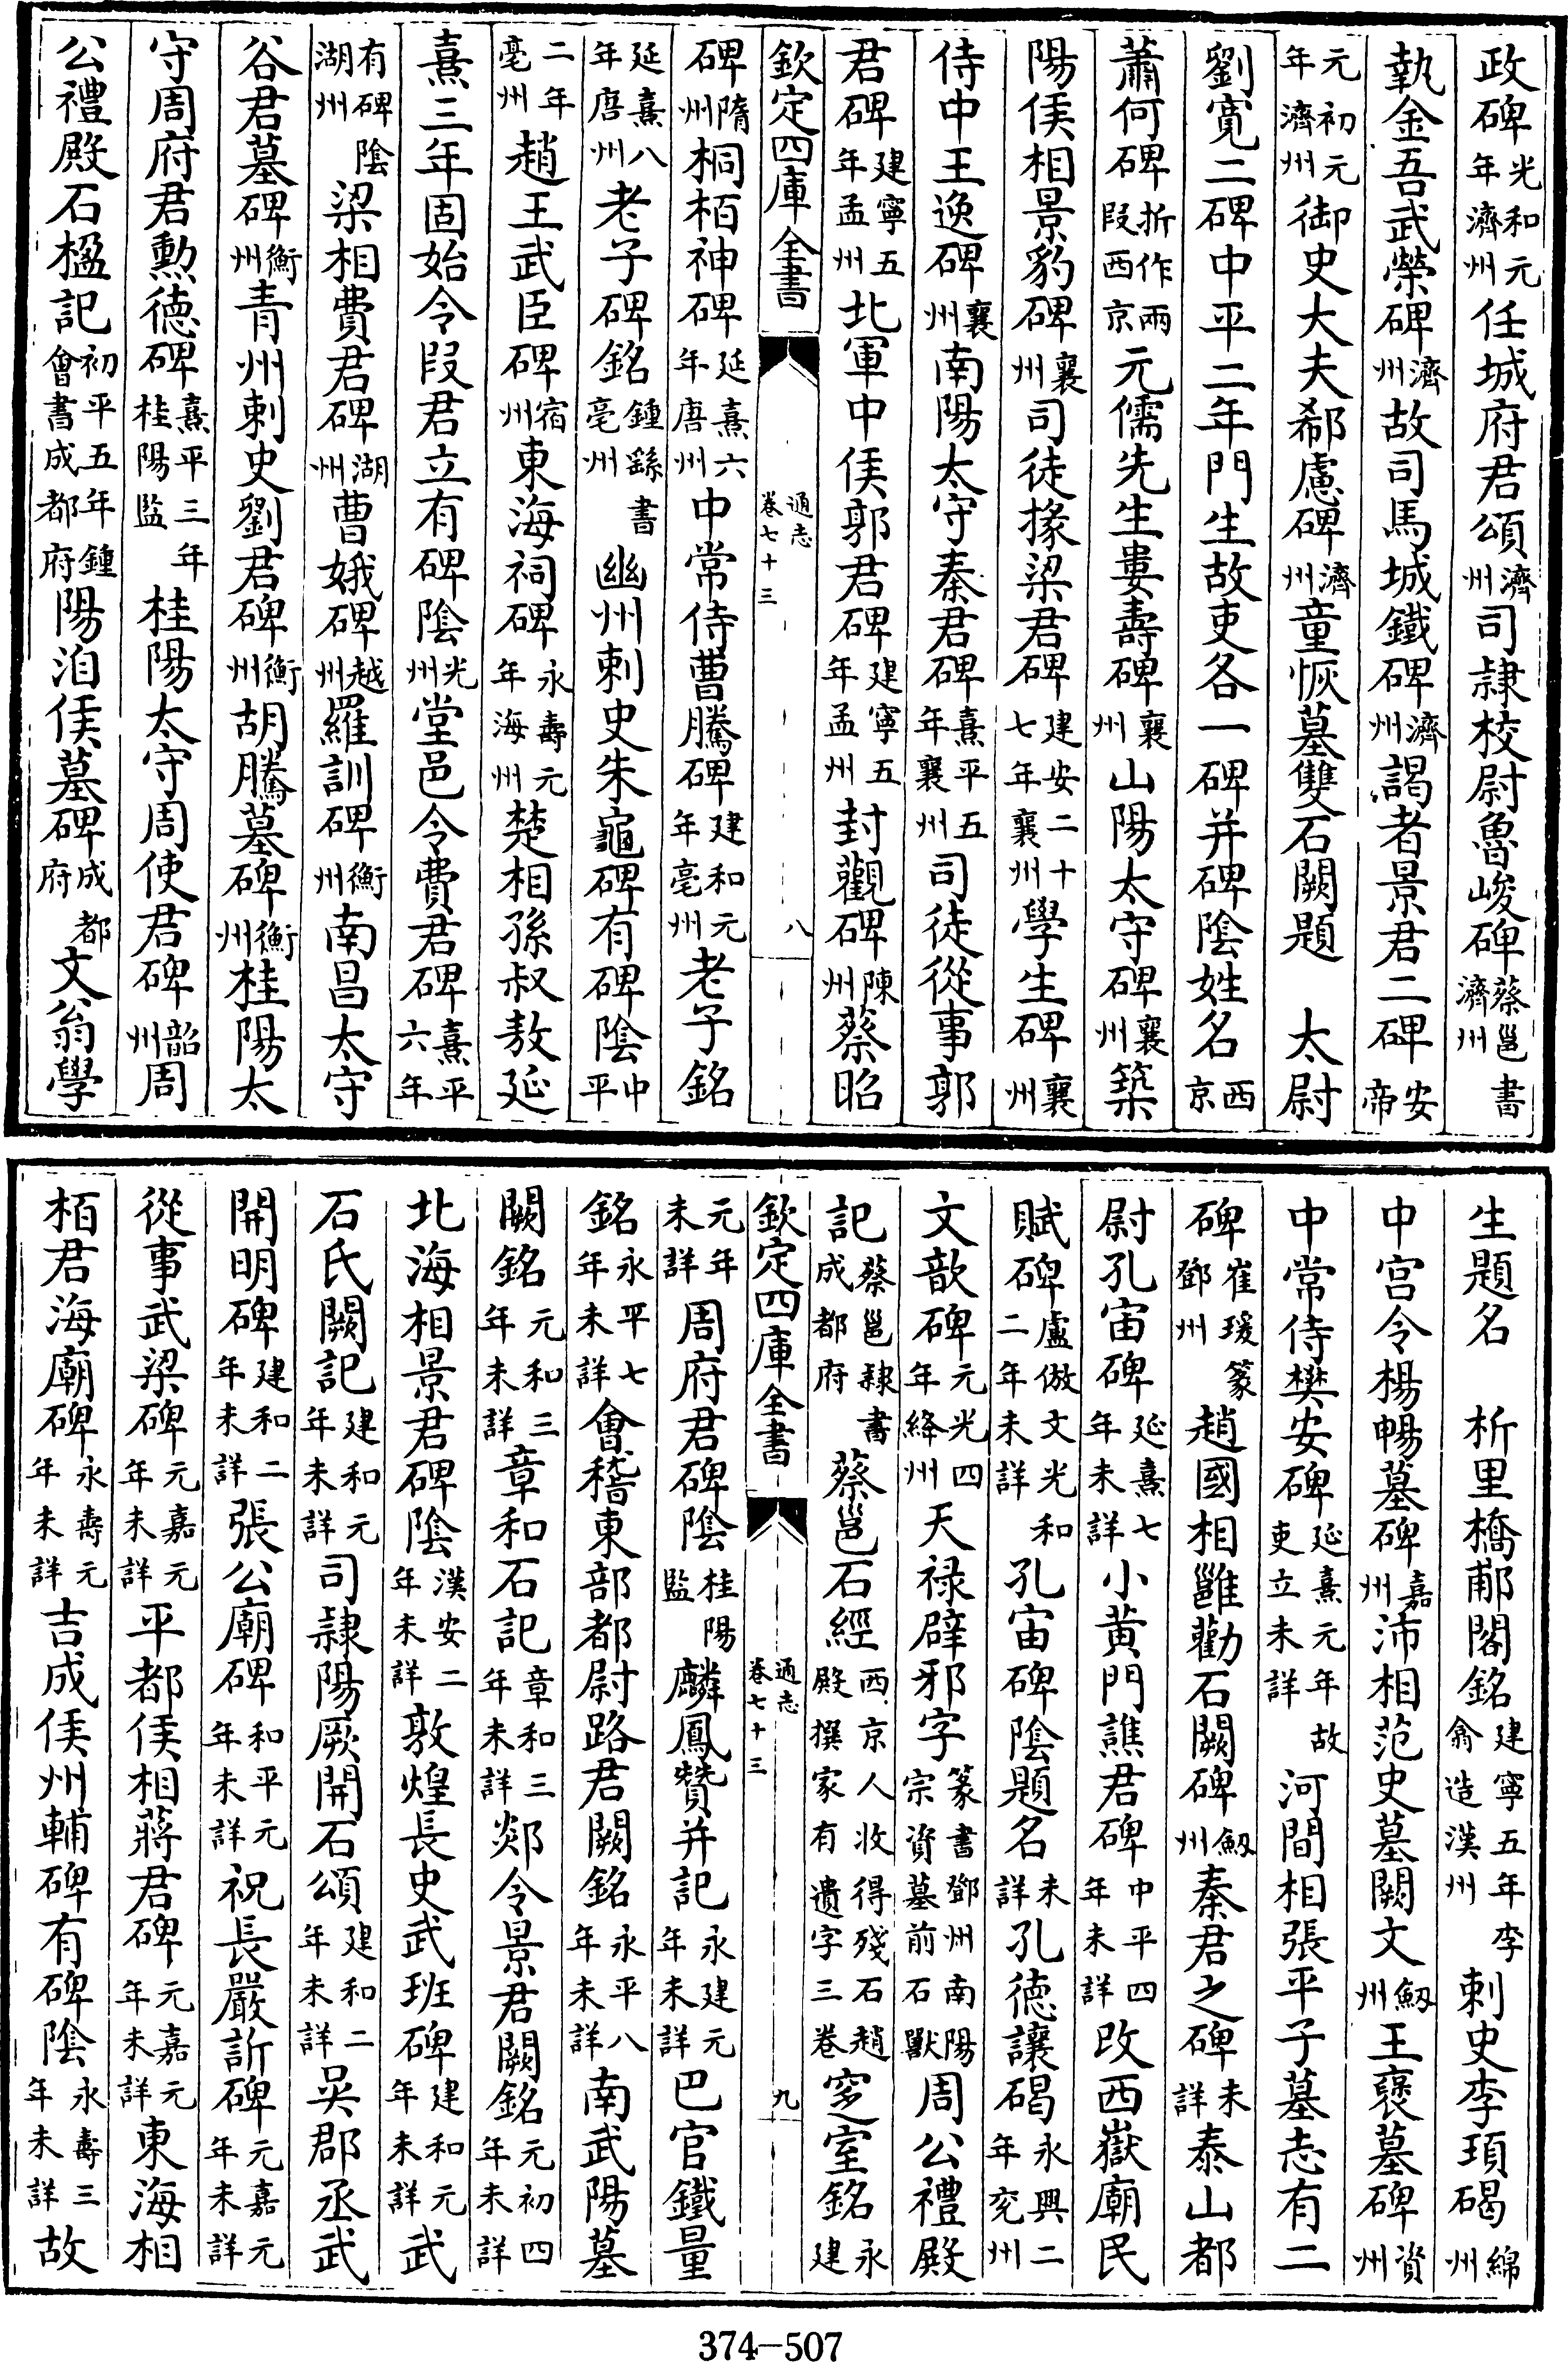 政碑光和元年濟州任城府君頌濟州司隷校尉魯峻碑蔡邕書濟州
執金吾武榮碑濟州故司馬城鐵碑濟州謁者景君二碑安帝
元初元年濟州御史大夫郗慮碑濟州童恢墓雙石闕題　太尉
劉寛二碑中平二年門生故吏各一碑并碑陰姓名西京
蕭何碑折作兩段西京元儒先生婁壽碑襄州山陽太守碑襄州築
陽侯相景豹碑襄州司徒掾梁君碑建安二十七年襄州學生碑襄州
侍中王逸碑襄州南陽太守秦君碑熹平五年襄州司徒從事郭
君碑建寧五年孟州北軍中侯郭君碑建寧五年孟州封觀碑陳州蔡昭
欽定四庫全書　通志卷七十三　八
碑隋州桐栢神碑延熹六年唐州中常侍曹騰碑建和元年亳州老子銘
延熹八年唐州老子碑銘鍾繇書亳州幽州刺史朱龜碑有碑陰中平
二年亳州趙王武臣碑宿州東海祠碑永壽元年海州楚相孫叔敖延
熹三年固始令段君立有碑陰光州堂邑令費君碑熹平六年
有碑陰湖州梁相費君碑湖州曹娥碑越州羅訓碑衡州南昌太守
谷君墓碑衡州青州刺史劉君碑衡州胡騰墓碑衡州桂陽太
守周府君勲德碑熹平三年桂陽監桂陽太守周使君碑韶州周
公禮殿石楹記初平五年鍾會書成都府陽洎侯墓碑成都府文翁學
生題名　析里橋郙閣銘建寧五年李翕造漢州刺史李頊碣綿州
中宫令楊暢墓碑嘉州沛相范史墓闕文劒州王褒墓碑資州
中常侍樊安碑延熹元年故吏立未詳河間相張平子墓志有二
碑崔瑗篆鄧州趙國相雝勸石闕碑劒州秦君之碑未詳泰山都
尉孔宙碑延熹七年未詳小黃門譙君碑中平四年未詳改西嶽廟民
賦碑盧倣文光和二年未詳孔宙碑陰題名未詳孔德讓碣永興二年兖州
文歆碑元光四年絳州天祿辟邪字篆書鄧州南陽宗資墓前石獸周公禮殿
記蔡邕隸書成都府蔡邕石經西京人收得殘石趙殿撰家有遺字三卷窆室銘永建
欽定四庫全書　通志卷七十三　九
元年年未詳周府君碑陰桂陽監麟鳳贊并記永建元年未詳巴官鐵量
銘永平七年未詳會稽東部都尉路君闕銘永平八年未詳南武陽墓
闕銘元和三年未詳章和石記章和三年未詳郯令景君闕銘元初四年未詳
北海相景君碑陰漢安二年未詳敦煌長史武班碑建和元年未詳武
石氏闕記建和元年未詳司隷陽厥開石頌建和二年未詳吳郡丞武
開明碑建和二年未詳張公廟碑和平元年未詳祝長嚴訢碑元嘉元年未詳
從事武梁碑元嘉元年未詳平都侯相蔣君碑元嘉元年未詳東海相
栢君海廟碑永壽元年未詳吉成侯州輔碑有碑陰永壽三年未詳故
374—507